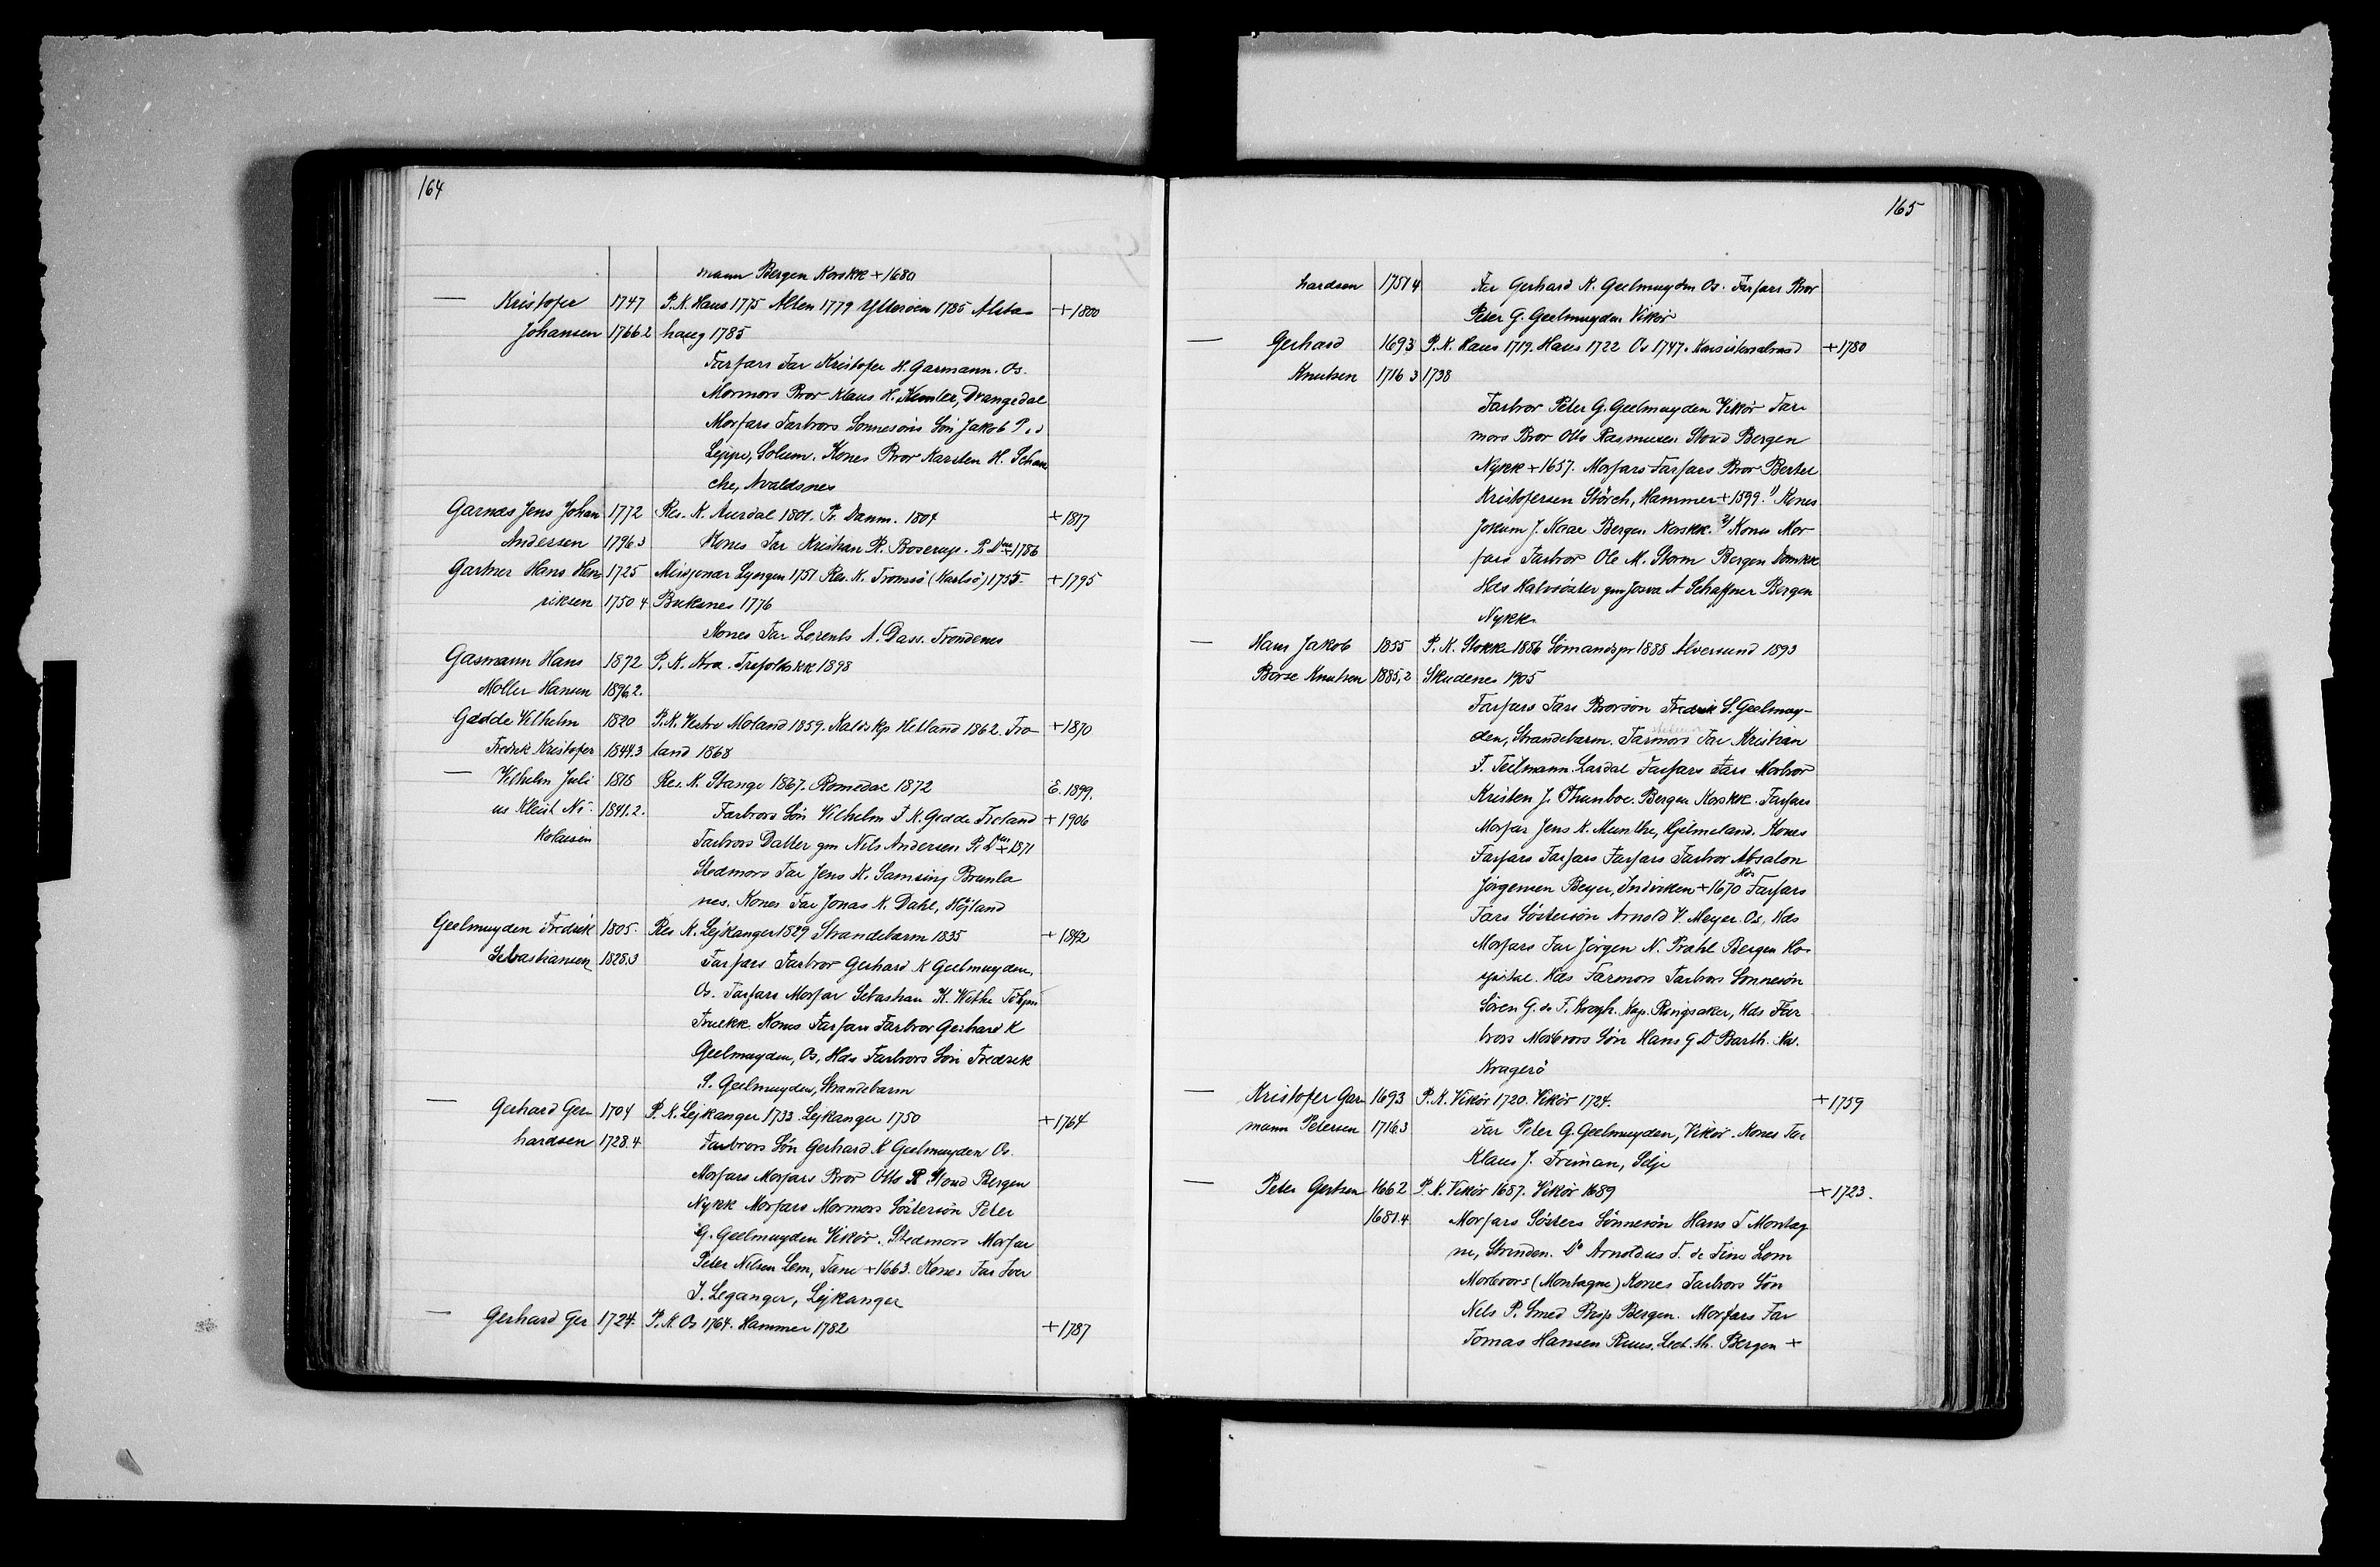 164
mann Bergen Korskk + 1680
— Kristofer 1747 P. K. Haus 1775 Alten 1779 Ytterøen 1785 Alsta- + 1800
Johansen 1766.2 haug 1785
Farfars Far Kristofer H. Garmann. Os.
Mormors Bror Klaus H. Kemler, Drangedal
Morfars Farbrors Sønnesøns Søn Jakob P. d
Leppe, Solum. Kones Bror Karsten H. Schan
che, Avaldsnes
Garnæs Jens Johan 1772 Res. K. Aurdal 1801. Pr. Danm. 1804 + 1817
Andersen 1796.3 Kones Far Kristian R. Boserup. P. i Dmk + 1786
Gartner Hans Hen- 1725 Missjonær Lyngen 1751 Res. K. Tromsø (Karlsø) 1755. + 1795
riksen 1750.4 Buksnes 1776
Kones Far Lorents A. Dass. Trondenes
Gasmann Hans 1872 P. K. Kra. Trefoldkk 1898
Møller Hansen 1896.2.
Gedde Vilhelm 1820 P. K. Vestre Moland 1859. Kaldskp Hetland 1862. Fro- + 1870
Fredrik Kristofer 1844.3 land 1868
— Vilhelm Juli 1818 Res. K. Stange 1867. Romedal 1872 E. 1899.
us Kleist Ni- 1841.2. Farbrors Søn Vilhelm F. K. Gedde Froland + 1906
kolaisen Farbrors Datter gm Nils Andersen P. i Dmk + 1871
Stedmors Far Jens K. Samsing Brunla
nes. Kones Far Jonas K. Dahl, Højland
Geelmuyden Fredrik 1805. Res. K. Lejkanger 1829 Strandebarm 1835 + 1842
Sebastiansen 1828.3 Farfars Farbror Gerhard K Geelmuyden,
Os. Farfars Morfar Sebastian K. Withe
Fruekk. Kones Farfars Farbror Gerhard K
Geelmuyden, Os, Hds Farbrors Søn Fredrik
S. Geelmuyden, Strandebarm
— Gerhard Ger- 1704 P. K. Lejkanger 1733. Lejkanger 1750 + 1764
hardsen 1728.4 Farbrors Søn Gerhard K Geelmuyden Os.
Morfars Morfars Bror Otto R Stoud Bergen
Nykk Morfars Mormors Søstersøn Peter
G. Geelmuyden Vikør. Stedmors Morfar
Peter Nilsen Lem, Tane + 1663. Kones Far Iver
I. Leganger, Lejkanger
— Gerhard Ger 1724. P. K. Os 1764. Hammer 1782 + 1787
165
hardsen 1751 4 Far Gerhard K. Geelmuyden Os. Farfars Bror
Peter G. Geelmuyden Vikør
— Gerhard 1693 P. K. Haus 1719. Haus 1722 Os 1747. Konsistorialraad + 1780
Knutsen 1716 3 1738
Farbror Peter G. Geelmuyden Vikør Far-
mors Bror Otto Rasmusen Stoud Bergen
Nykk + 1657. Morfars Farfars Bror Bertel
Kristofersen Störch, Hammer + 1599. 1) Kones
Jokum J. Kaae Bergen Korskk. 2) Kones Mor
fars Farbror Ole M. Storm Bergen Domkk
Hds Halvsøster gm Josva A Schaffner Bergen
Nykk.
— Hans Jakob 1855 P. K. Stokke 1886 Sømandspr 1888 Alversund 1893
Børse Knutsen 1885,2 Skudenes 1905
Farfars Fars Brorsøn Fredrik S. Geelmuy-
den, Strandebarm. Farmors Far Kristian
F. Teilmann. Lardal Farfars Fars Morbror
Kristen J. Thunboe. Bergen Korskk. Farfars
Morfar Jens K. Munthe, Hjelmeland. Kones
Farfars Farfars Farfars Farbror Absalon
Jørgensen Beyer, Indviken + 1670 Hds Farfars
Fars Søstersøn Arnold V. Meyer. Os, Hds
Morfars Far Jørgen N. Prahl Bergen Ho-
spital. Hds Farmors Farbrors Sønnesøn
Søren G. de T. Kragh. Kap. Ringsaker, Hds Far
brors Morbrors Søn Hans G D Barth. Ka.
Kragerø
— Kristofer Gar- 1693 P. K. Vikør 1720. Vikør 1724. + 1759
mann Petersen 1716.3 Far Peter G. Geelmuyden, Vikør. Kones Far
Klaus J. Friman, Selje
— Peter Gertsen 1662 P. K. Vikør 1687. Vikør 1689 + 1723.
1681.4 Morfars Søsters Sønnesøn Hans T Montag
ne, Strinden. Do Arnoldus T. de Fine Lom
Morbrors (Montagne) Kones Farbrors Søn
Nils P. Smed Bisp Bergen. Morfars Far
Tomas Hansen Ruus. Lect. th. Bergen +